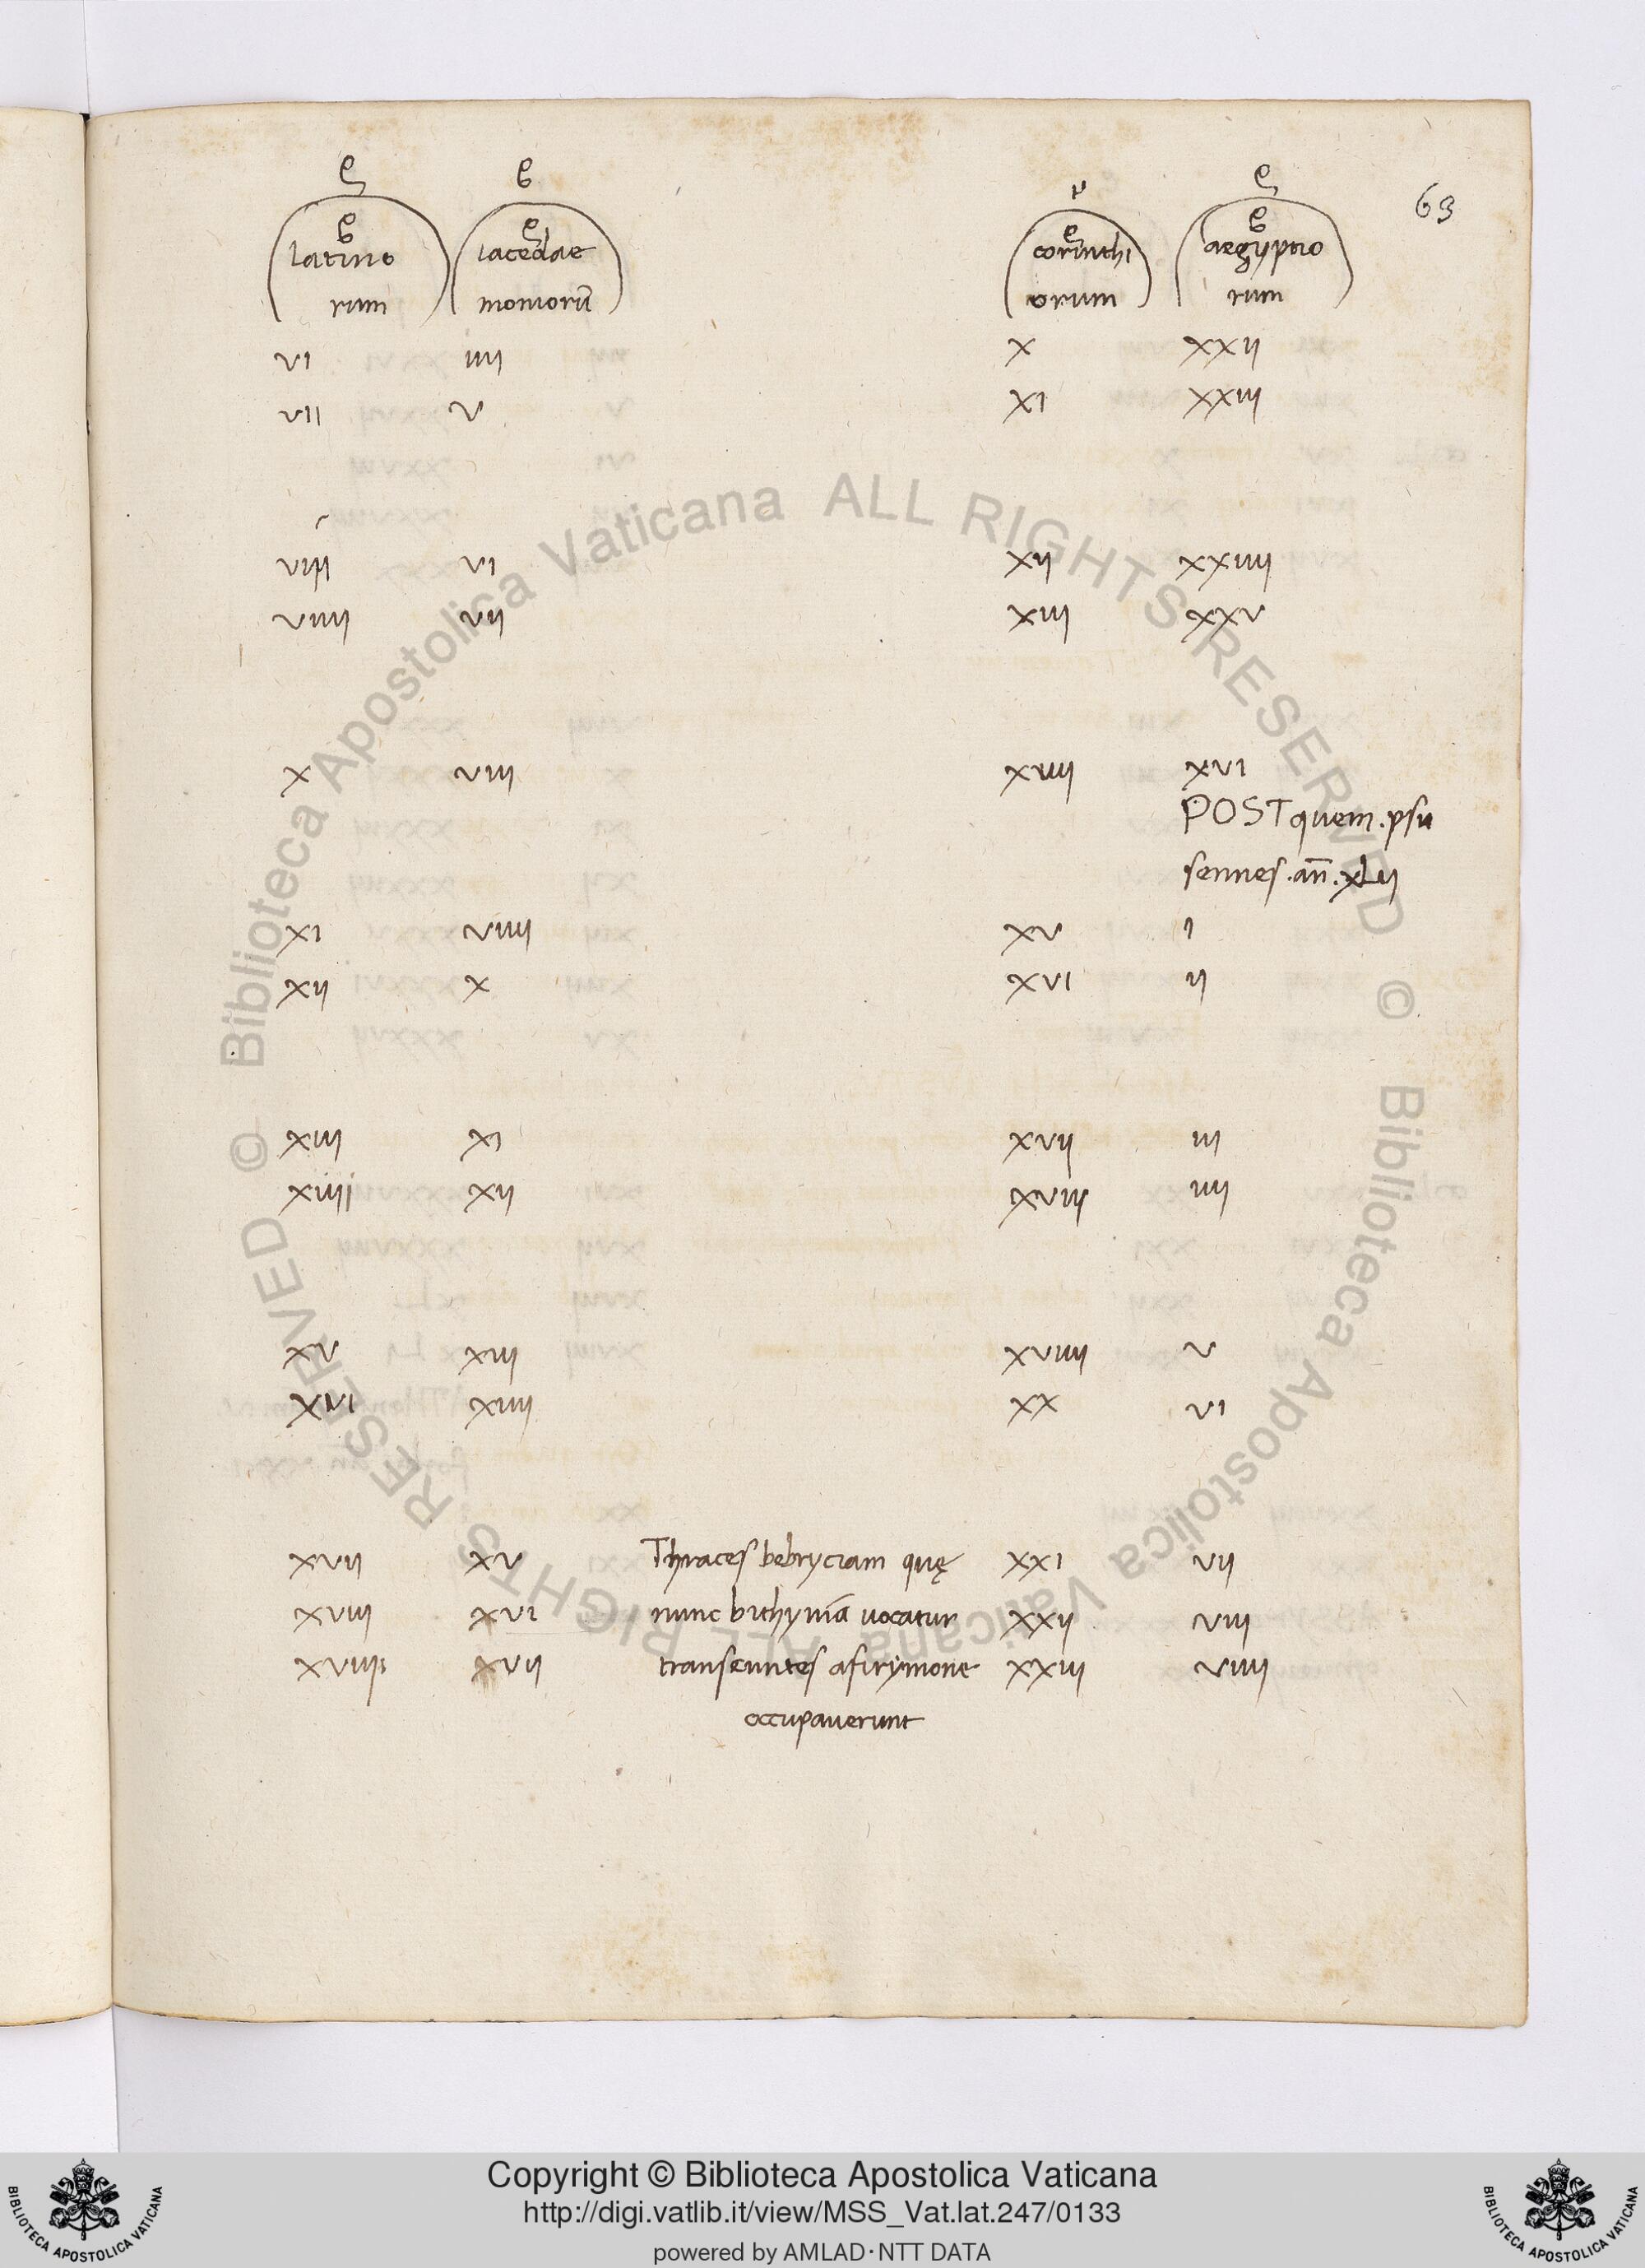 63
latino lacedae corinthi aegyptio
rum moniorū orum rum
vi iiii x xxii
vii v xi xxiii
viii vi xii xxiiii
viiii vii xiii xxv
x viii xiiii xvi
POST quem. psu
sennes. an̄. xLii
xi viiii xv i
xii x xvi ii
xiii xi xvii iii
xiiii xii xviii iiii
xv xiii xviiii v
xvi xiiii xx vi
xvii xv Thraces bebryciam quę xxi vii
xviii xvi nunc bithyniā uocatur xxii viii
xviiii xvii transeuntes astrymone xxiii viiii
occupauerunt
© Biblioteca Apostolica Vaticana ALL RIGHTS RESERVED
© Biblioteca Apostolica Vaticana ALL RIGHTS RESERVED
Copyright © Biblioteca Apostolica Vaticana
http://digi.vatlib.it/view/MSS_Vat.lat.247/0133
powered by AMLAD·NTT DATA
BIBLIOTECA APOSTOLICA VATICANA
BIBLIOTECA APOSTOLICA VATICANA